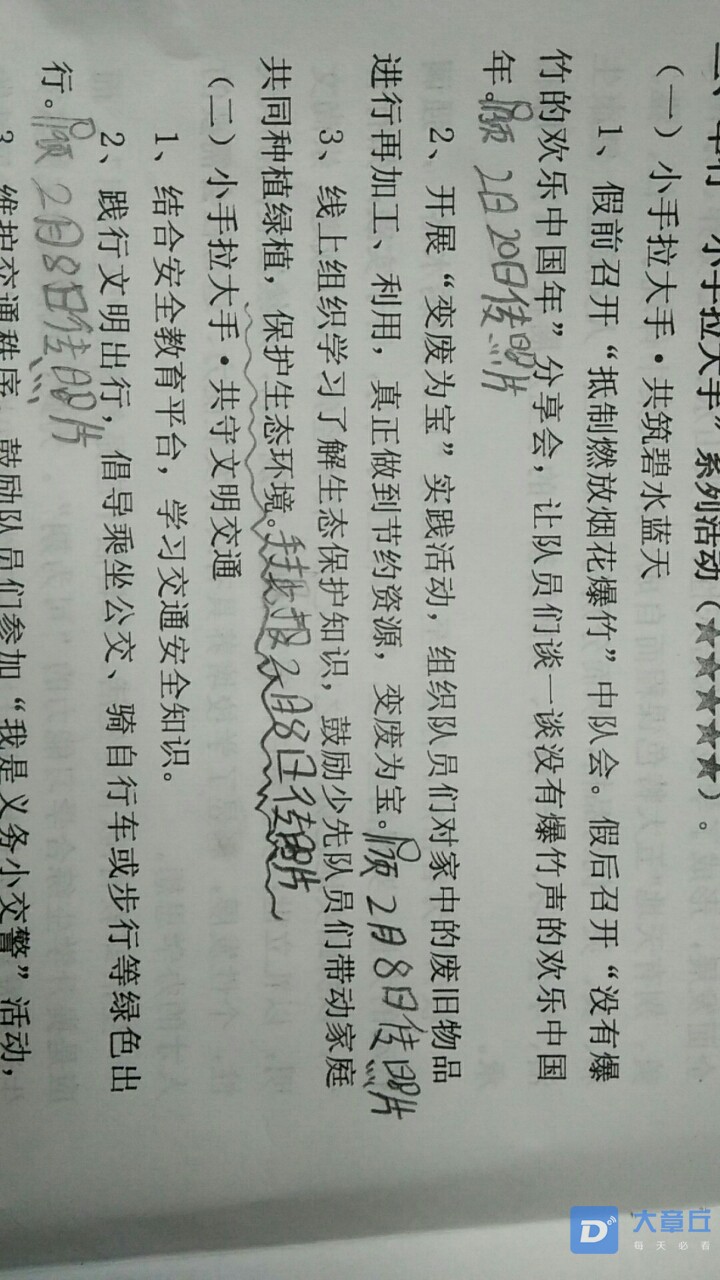 小手拉大手”系列活动（★★★★★）。
（一）小手拉大手·共筑碧水蓝天
1、假前召开“抵制燃放烟花爆竹”中队会。假后召开“没有爆
竹的欢乐中国年”分享会，让队员们谈一谈没有爆竹声的欢乐中国
年。 2日20日传照片
2、开展“变废为宝”实践活动，组织队员们对家中的废旧物品
进行再加工、利用，真正做到节约资源，变废为宝。 2月8日传照片
3、线上组织学习了解生态保护知识，鼓励少先队员们带动家庭
共同种植绿植，保护生态环境。 2月8日传照片
（二）小手拉大手·共守文明交通
1、结合安全教育平台，学习交通安全知识。
2、践行文明出行，倡导乘坐公交、骑自行车或步行等绿色出
行。 2月8日传照片
3、维护交通秩序，鼓励队员们参加“我是义务小交警”活动，
大章丘
每天必看